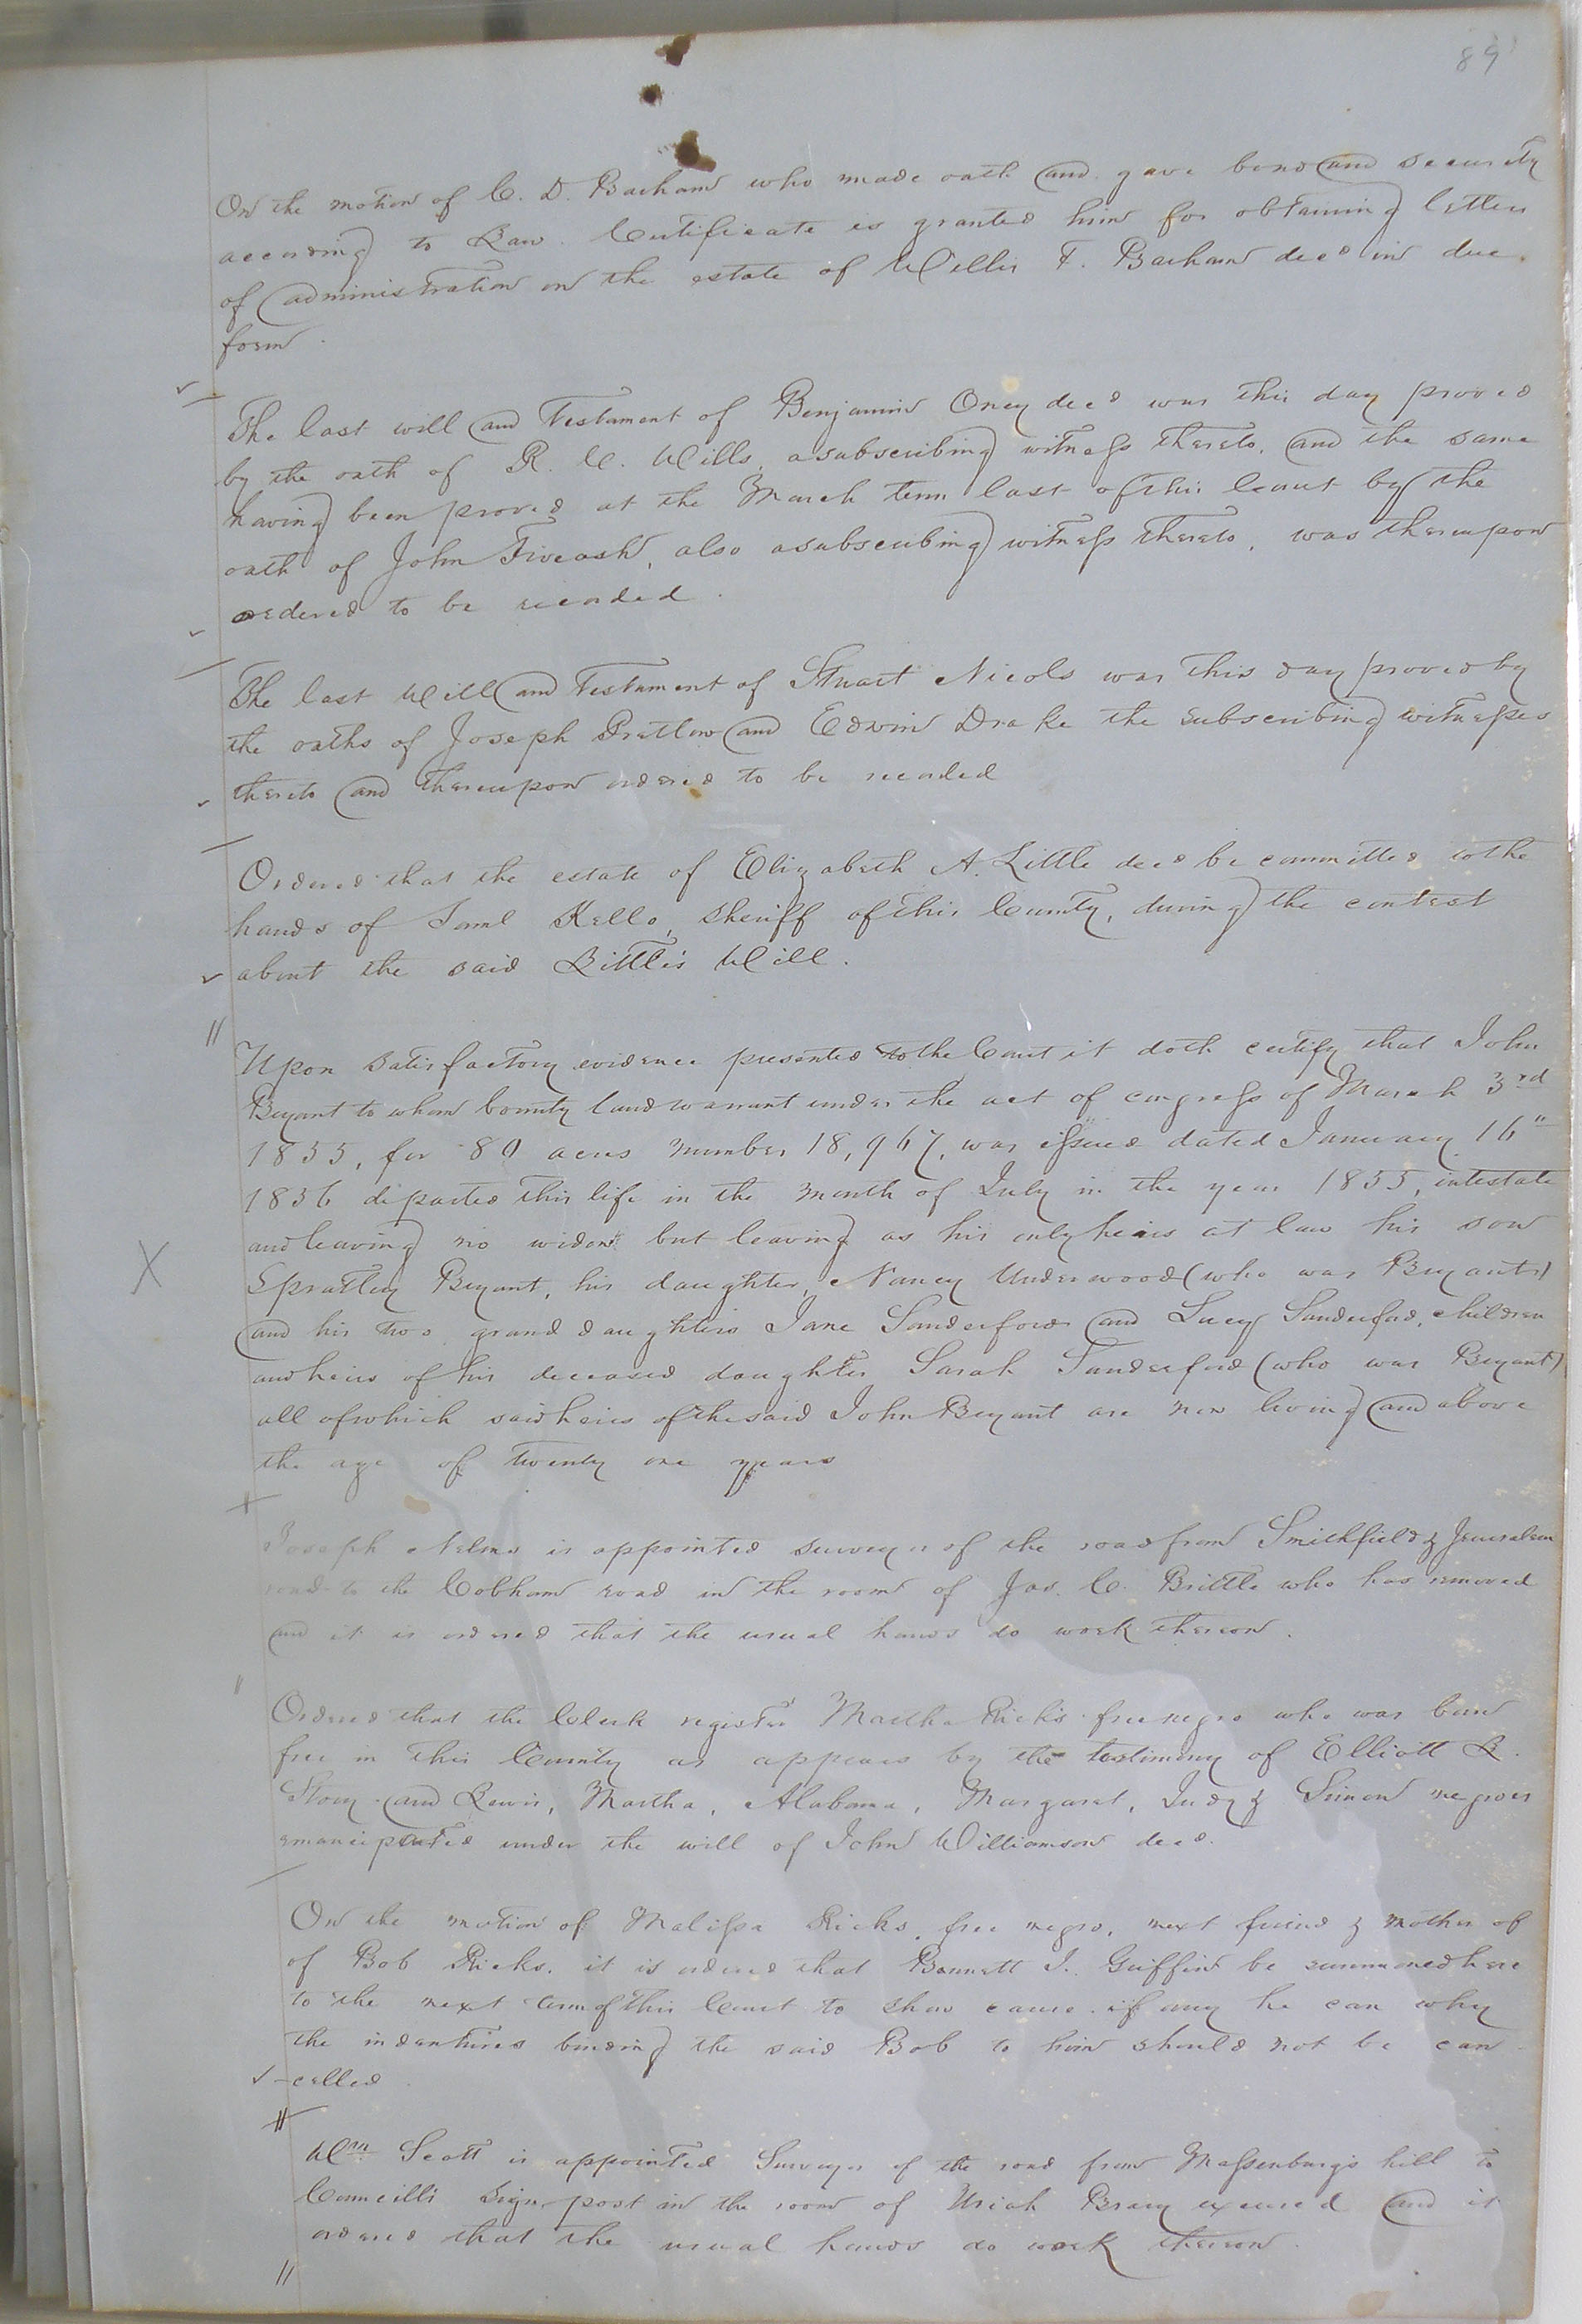 89
On the motion of C. D. Barham who made oath and gave bond and security
according to Law. Certificate is granted him for obtaining letters
of administration on the estate of Willis F. Barham decd in due
form.
The last will and Testament of Benjamin Oney decd was this day proved
by the oath of R. C. Wills, a subscribing witness thereto, and the same
having been proved at the March term last of this Court by the
oath of John Fiveash, also a subscribing witness thereto, was thereupon
ordered to be recorded.
The last Will and Testament of Stuart Nicols was this day proved by
the oaths of Joseph Pretlow and Edwin Drake the subscribing witnesses
thereto and thereupon ordered to be recorded
Ordered that the estate of Elizabeth A. Little decd be committed to the
hands of Saml Kello, Sheriff of this County, during the contest
about the said Little's Will.
Upon satisfactory evidence presented to the Court it doth certify that John
Bryant to whom bounty land warrant under the act of congress of March 3rd
1855, for 80 acres number 18,967, was issued dated January 16"
1856 departed this life in the month of July in the year 1855, intestate
and leaving no widow but leaving as his only heirs at law his son
Spratley Bryant, his daughter, Nancy Underwood (who was Bryant)
and his two grand daughters Jane Sanderford and Lucy Sanderford, children
and heirs of his deceased daughter Sarah Sanderford (who was Bryant)
all of which said heirs of the said John Bryant are now living and above
the age of twenty one years
Joseph Nelms is appointed surveyor of the road from Smithfield & Jerusalem
road to the Cobham road in the room of Jas. C. Brittle who has removed
and it is ordered that the usual hands do work thereon.
Ordered that the Clerk register Martha Ricks free negro who was born
free in this County as appears by the testimony of Elliott L.
Story and Lewis, Martha, Alabama, Margaret, Judy & Simon negroes
emancipated under the will of John Williamson decd.
On the motion of Malissa Ricks, free negro, next friend & mother of
of Bob Ricks, it is ordered that Bennett J. Griffin be summoned here
to the next term of this Court to show cause if any he can why
the indentures binding the said Bob to him should not be can
-celled.
Wm Scott is appointed Surveyor of the road from Massenburg's hill to
Councill's Sign post in the room of Uriah Brary excused and it
ordered that the usual hands do work thereon.